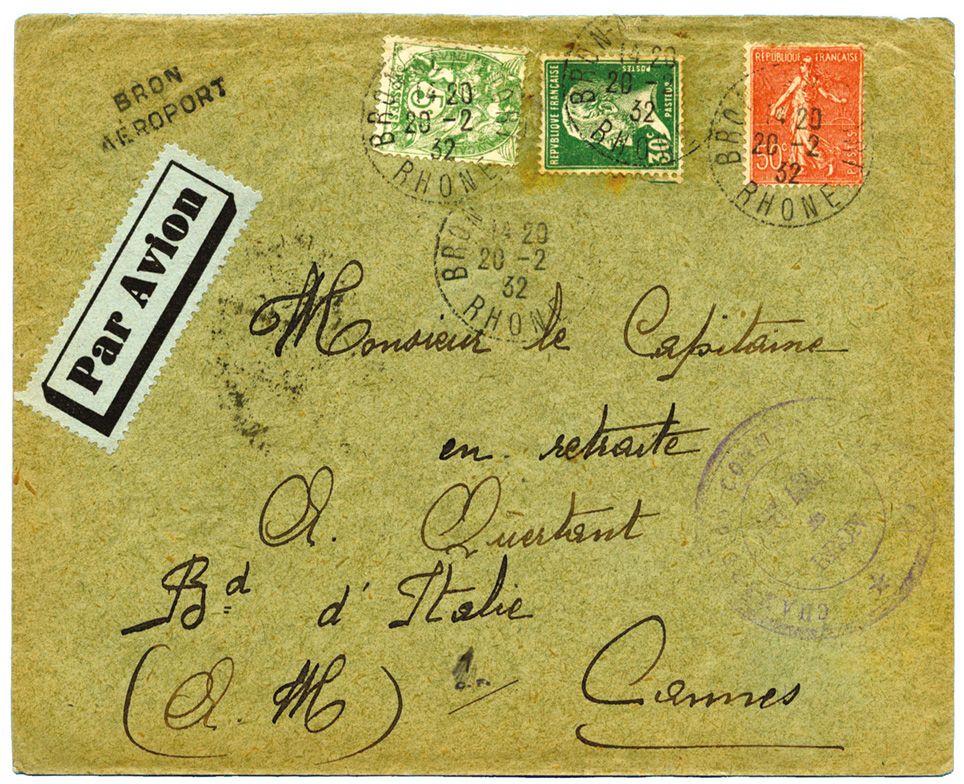 BRON
AÉROPORT
Par Avion
5
RÉPUBLIQUE FRANÇAISE
POSTES
PASTEUR
30c
RÉPUBLIQUE FRANÇAISE
50c
POSTES
BRON
14 20
20 -2
32
RHONE
BRON
14 20
20 -2
32
RHO
BRO
14 20
20 -2
32
RHONE
BRON
14 20
20 -2
32
RHONE
Monsieur le Capitaine
en retraite
A. Quertant
Bd d'Italie
(A. M) Cannes
BRON